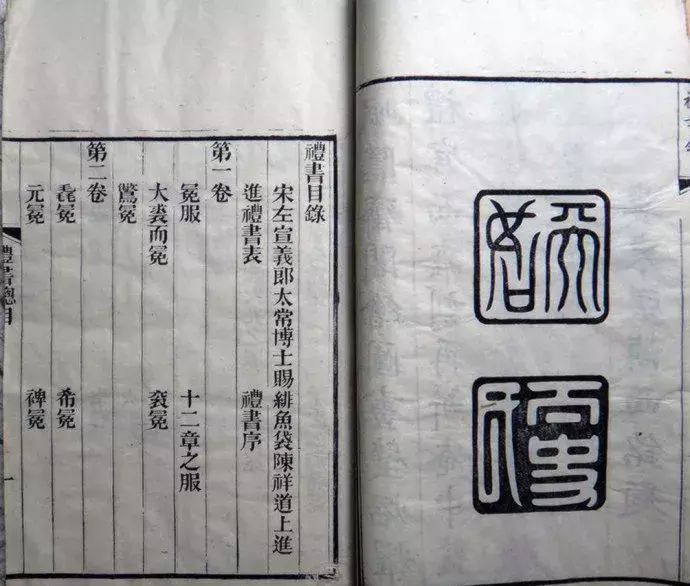 禮書目錄
宋左宣義郎太常博士賜緋魚袋陳祥道上進
進禮書表 禮書序
第一卷
冕服 十二章之服
大裘而冕 袞冕
鷩冕
第二卷
毳冕 希冕
元冕 裨冕
禮書總目
一